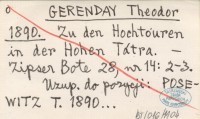 o GERENDAY Theodor
1890. Zu den Hochtouren
in der Hohen Tátra. —
Zipser Bote 28, nr 14: 2-3.
Uzup. do pozycji: POSE-
WITZ T. 1890...